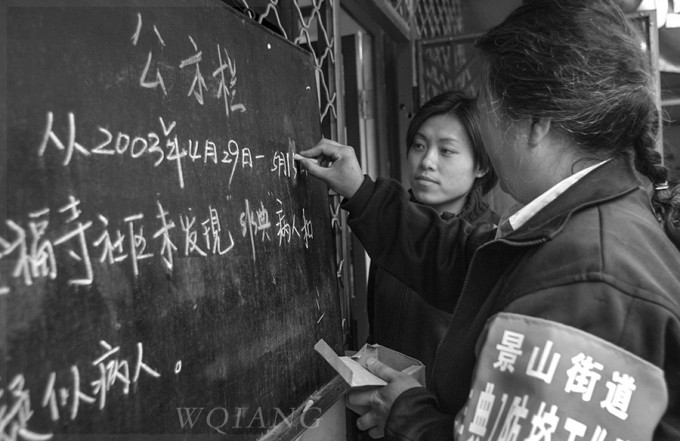 公示栏
从2003年4月29日—5月1
福寺社区未发现“非典”病人和
疑似病人。
景山街道
典防控工
WQIANG